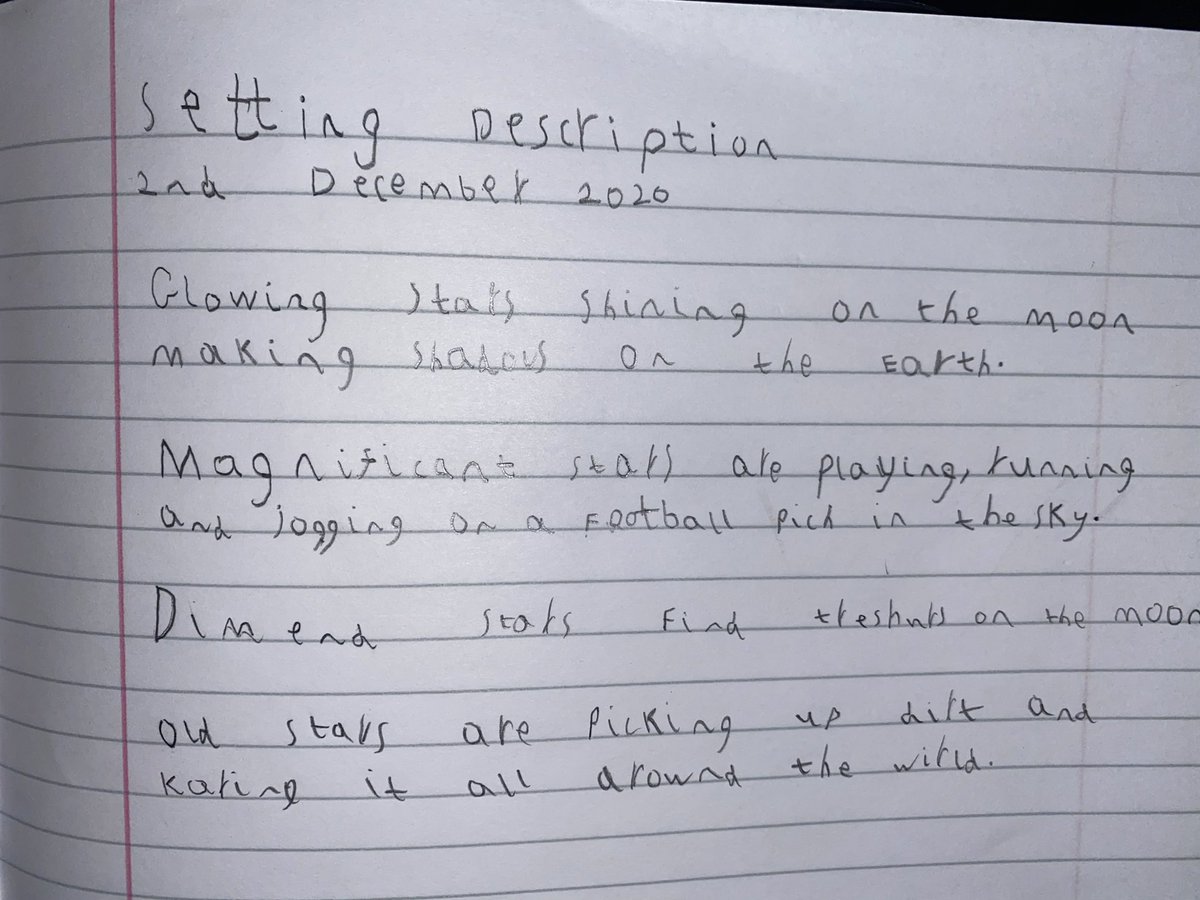 Setting Description
2nd December 2020
Glowing stars shining on the moon
making shadows on the Earth.
Magnificant stars are playing, running
and jogging on a football pich in the sky.
Dimend stars find treshurs on the moon
old stars are picking up dirt and
karing it all around the wirld.